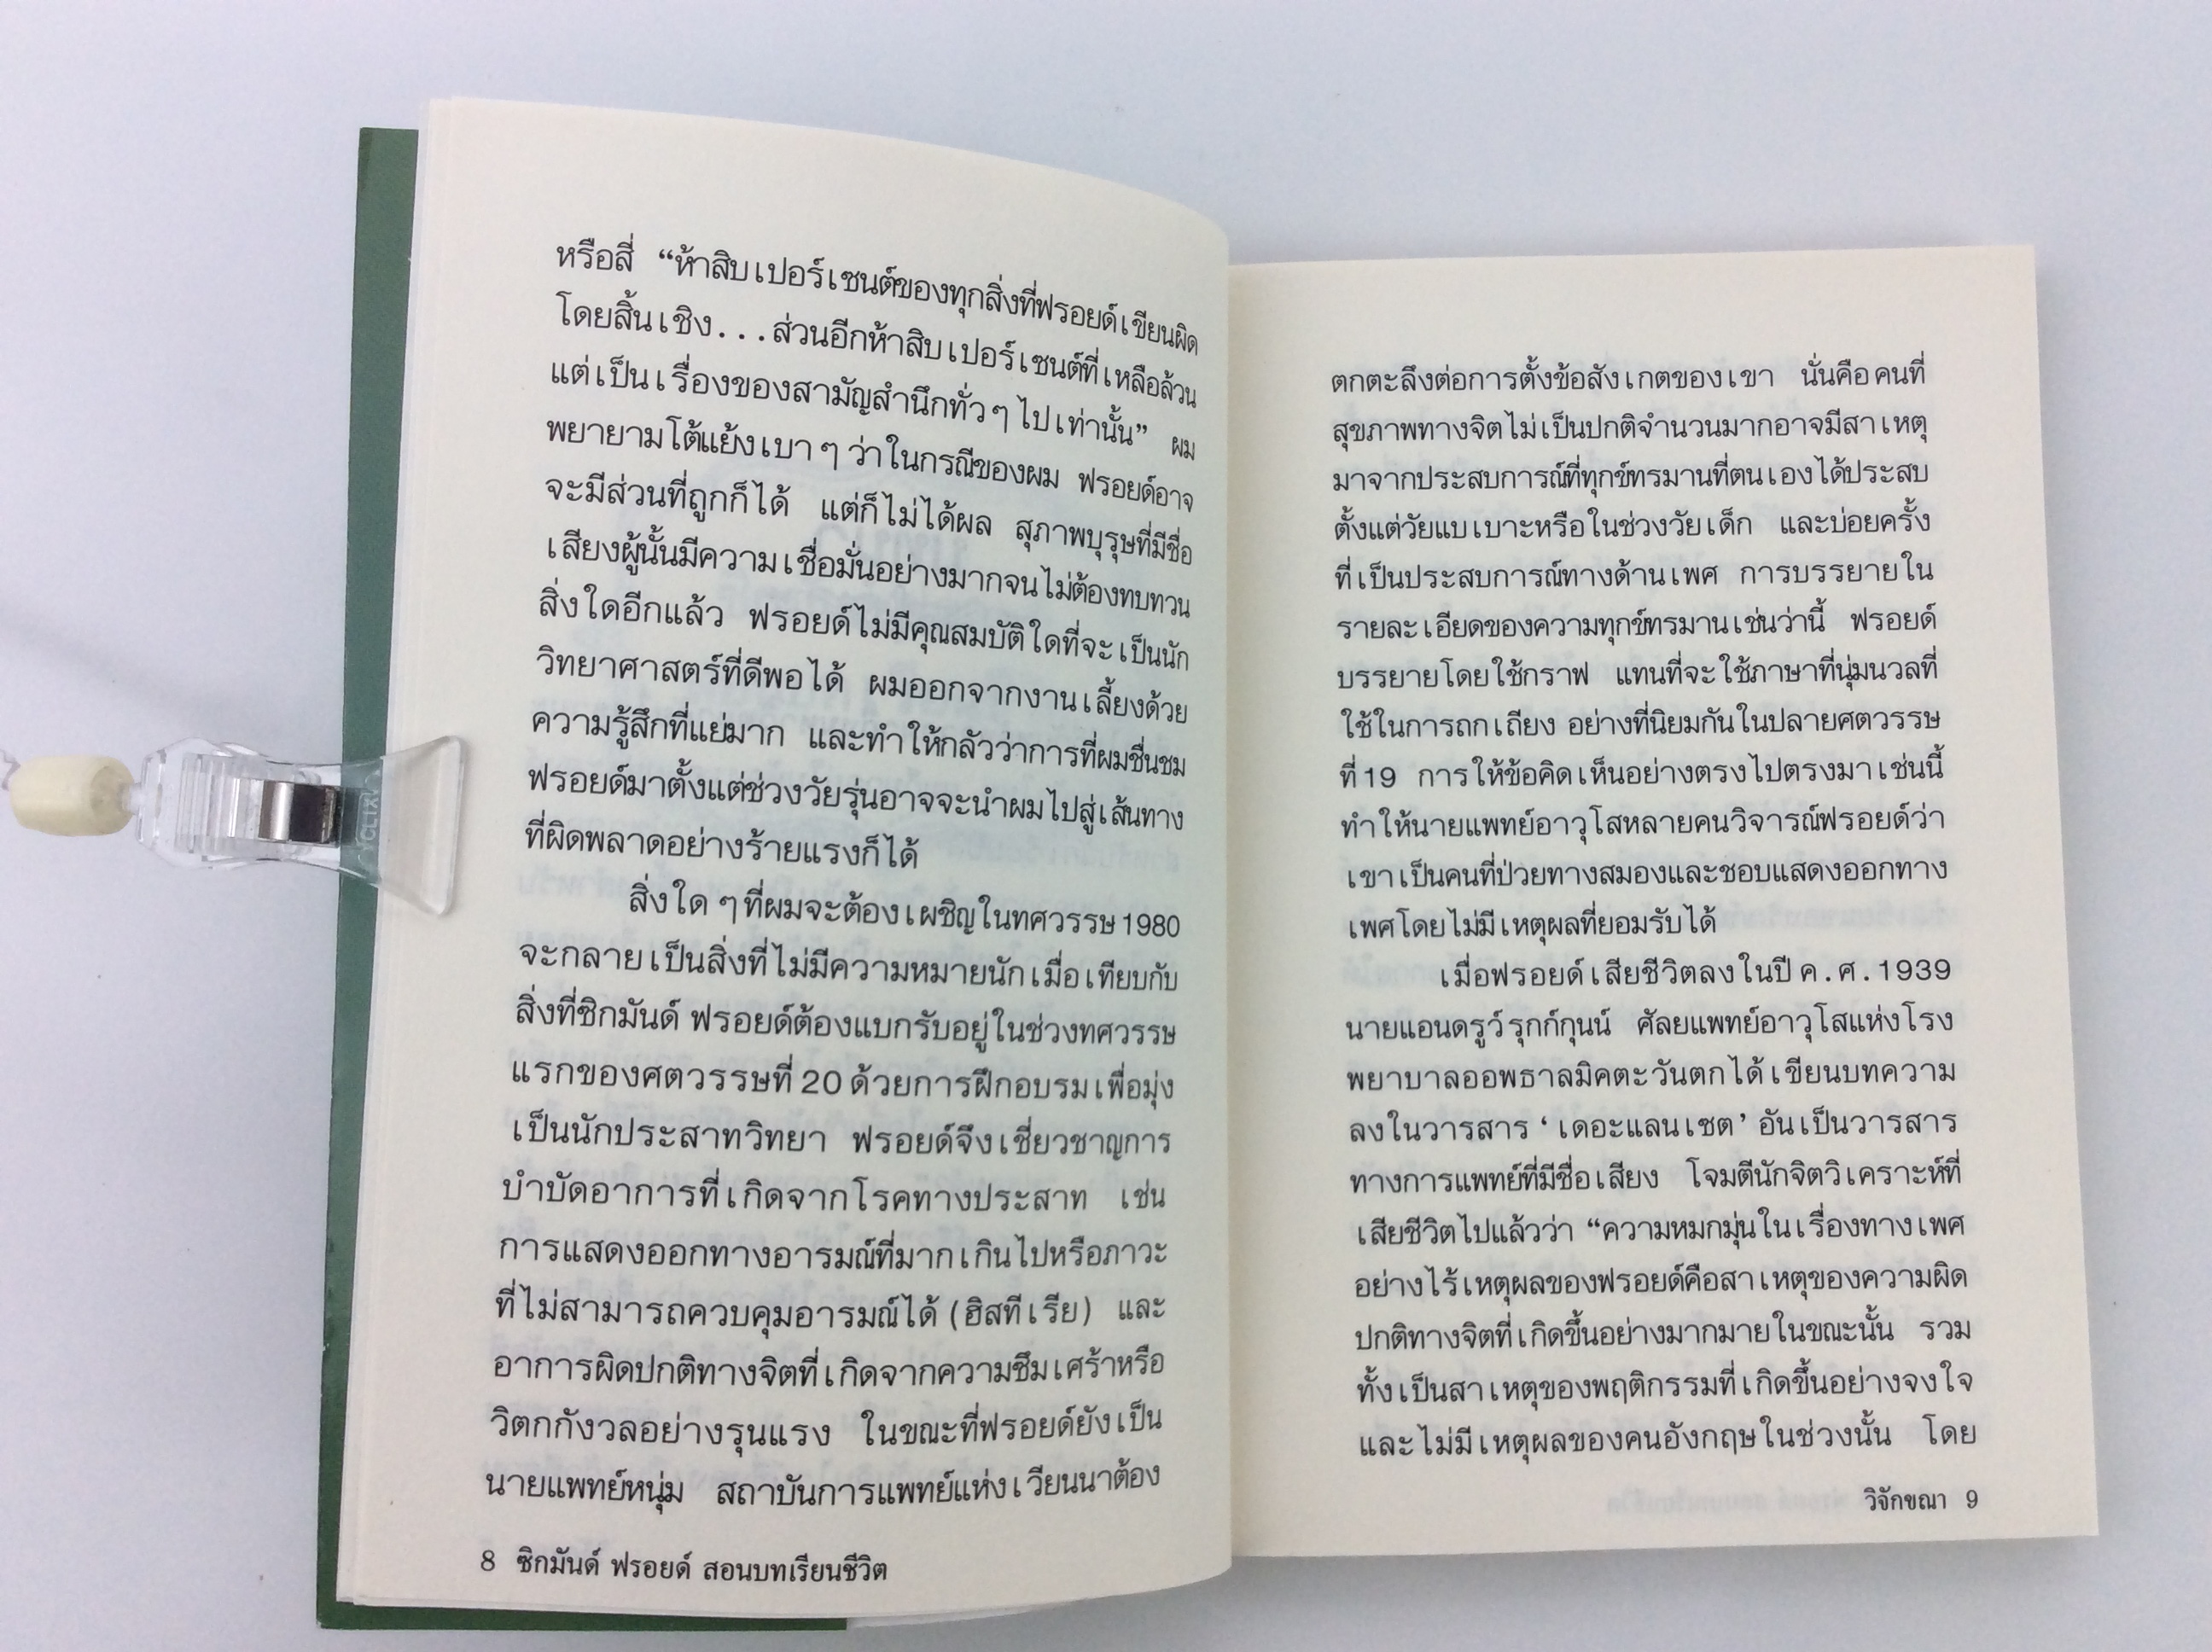 หรือสี่ “ห้าสิบเปอร์เซนต์ของทุกสิ่งที่ฟรอยด์เขียนผิด
โดยสิ้นเชิง...ส่วนอีกห้าสิบเปอร์เซนต์ที่เหลือล้วน
แต่เป็นเรื่องของสามัญสำนึกทั่วๆ ไปเท่านั้น” ผม
พยายามโต้แย้งเบา ๆ ว่าในกรณีของผม ฟรอยด์อาจ
จะมีส่วนที่ถูกก็ได้ แต่ก็ไม่ได้ผล สุภาพบุรุษที่มีชื่อ
เสียงผู้นั้นมีความเชื่อมั่นอย่างมากจนไม่ต้องทบทวน
สิ่งใดอีกแล้ว ฟรอยด์ไม่มีคุณสมบัติใดที่จะเป็นนัก
วิทยาศาสตร์ที่ดีพอได้ ผมออกจากงานเลี้ยงด้วย
ความรู้สึกที่แย่มาก และทำให้กลัวว่าการที่ผมชื่นชม
ฟรอยด์มาตั้งแต่ช่วงวัยรุ่นอาจจะนำผมไปสู่เส้นทาง
ที่ผิดพลาดอย่างร้ายแรงก็ได้
สิ่งใด ๆ ที่ผมจะต้องเผชิญในทศวรรษ 1980
จะกลายเป็นสิ่งที่ไม่มีความหมายนักเมื่อเทียบกับ
สิ่งที่ซิกมันด์ ฟรอยด์ต้องแบกรับอยู่ในช่วงทศวรรษ
แรกของศตวรรษที่ 20 ด้วยการฝึกอบรมเพื่อมุ่ง
เป็นนักประสาทวิทยา ฟรอยด์จึงเชี่ยวชาญการ
บำบัดอาการที่เกิดจากโรคทางประสาท เช่น
การแสดงออกทางอารมณ์ที่มากเกินไปหรือภาวะ
ที่ไม่สามารถควบคุมอารมณ์ได้ (ฮิสทีเรีย) และ
อาการผิดปกติทางจิตที่เกิดจากความซึมเศร้าหรือ
วิตกกังวลอย่างรุนแรง ในขณะที่ฟรอยด์ยังเป็น
นายแพทย์หนุ่ม สถาบันการแพทย์แห่งเวียนนาต้อง
8 ซิกมันด์ ฟรอยด์ สอนบทเรียนชีวิต
ตกตะลึงต่อการตั้งข้อสังเกตของเขา นั่นคือคนที่
สุขภาพทางจิตไม่เป็นปกติจำนวนมากอาจมีสาเหตุ
มาจากประสบการณ์ที่ทุกข์ทรมานที่ตนเองได้ประสบ
ตั้งแต่วัยแบเบาะหรือในช่วงวัยเด็ก และบ่อยครั้ง
ที่เป็นประสบการณ์ทางด้านเพศ การบรรยายใน
รายละเอียดของความทุกข์ทรมานเช่นว่านี้ ฟรอยด์
บรรยายโดยใช้กราฟ แทนที่จะใช้ภาษาที่นุ่มนวลที่
ใช้ในการถกเถียง อย่างที่นิยมกันในปลายศตวรรษ
ที่ 19 การให้ข้อคิดเห็นอย่างตรงไปตรงมาเช่นนี้
ทำให้นายแพทย์อาวุโสหลายคนวิจารณ์ฟรอยด์ว่า
เขาเป็นคนที่ป่วยทางสมองและชอบแสดงออกทาง
เพศโดยไม่มีเหตุผลที่ยอมรับได้
เมื่อฟรอยด์เสียชีวิตลงในปี ค.ศ.1939
นายแอนดรูว์ รุกก์กุนน์ ศัลยแพทย์อาวุโสแห่งโรง
พยาบาลออพธาลมิคตะวันตกได้เขียนบทความ
ลงในวารสาร ‘เดอะแลนเซต’ อันเป็นวารสาร
ทางการแพทย์ที่มีชื่อเสียง โจมตีนักจิตวิเคราะห์ที่
เสียชีวิตไปแล้วว่า “ความหมกมุ่นในเรื่องทางเพศ
อย่างไร้เหตุผลของฟรอยด์คือสาเหตุของความผิด
ปกติทางจิตที่เกิดขึ้นอย่างมากมายในขณะนั้น รวม
ทั้งเป็นสาเหตุของพฤติกรรมที่เกิดขึ้นอย่างจงใจ
และไม่มีเหตุผลของคนอังกฤษในช่วงนั้น โดย
วิจักขณา 9
CLIX